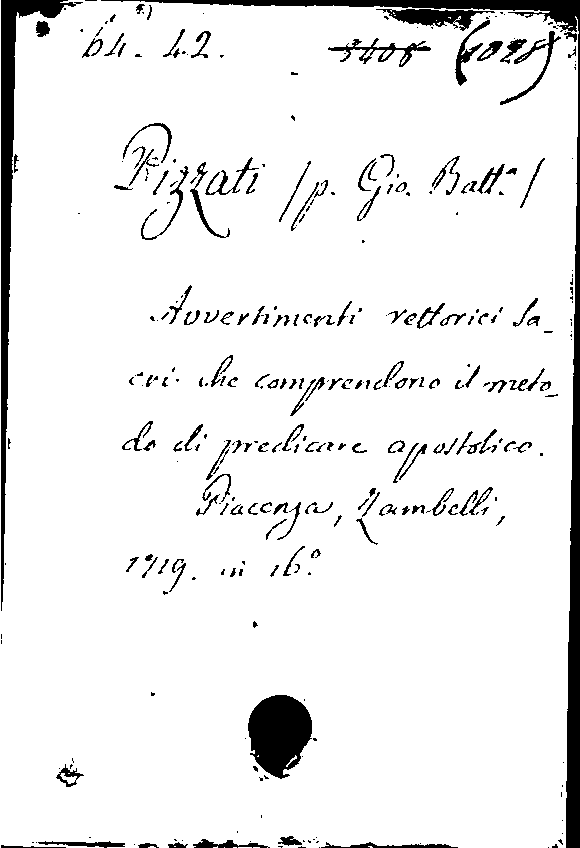 64. 42. 3408 (1028)
Pizzati /p. Gio. Batt.a/
Avvertimenti rettorici sa-
cri che comprendono il meto-
do di predicare apostolico.
Piacenza, Zambelli,
1719. in 16.o